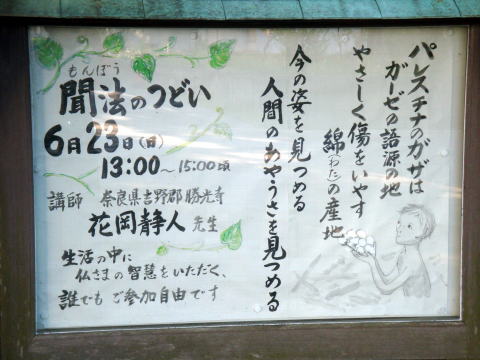 パレスチナのガザは
ガーゼの語源の地
やさしく傷をいやす
綿(わた)の産地
今の姿を見つめる
人間のあやうさを見つめる
もんぽう
聞法のつどい
6月23日(日)
13:00～15:00頃
講師 奈良県吉野郡 勝光寺
花岡静人 先生
生活の中に
仏さまの智慧をいただく、
誰でも ご参加自由です